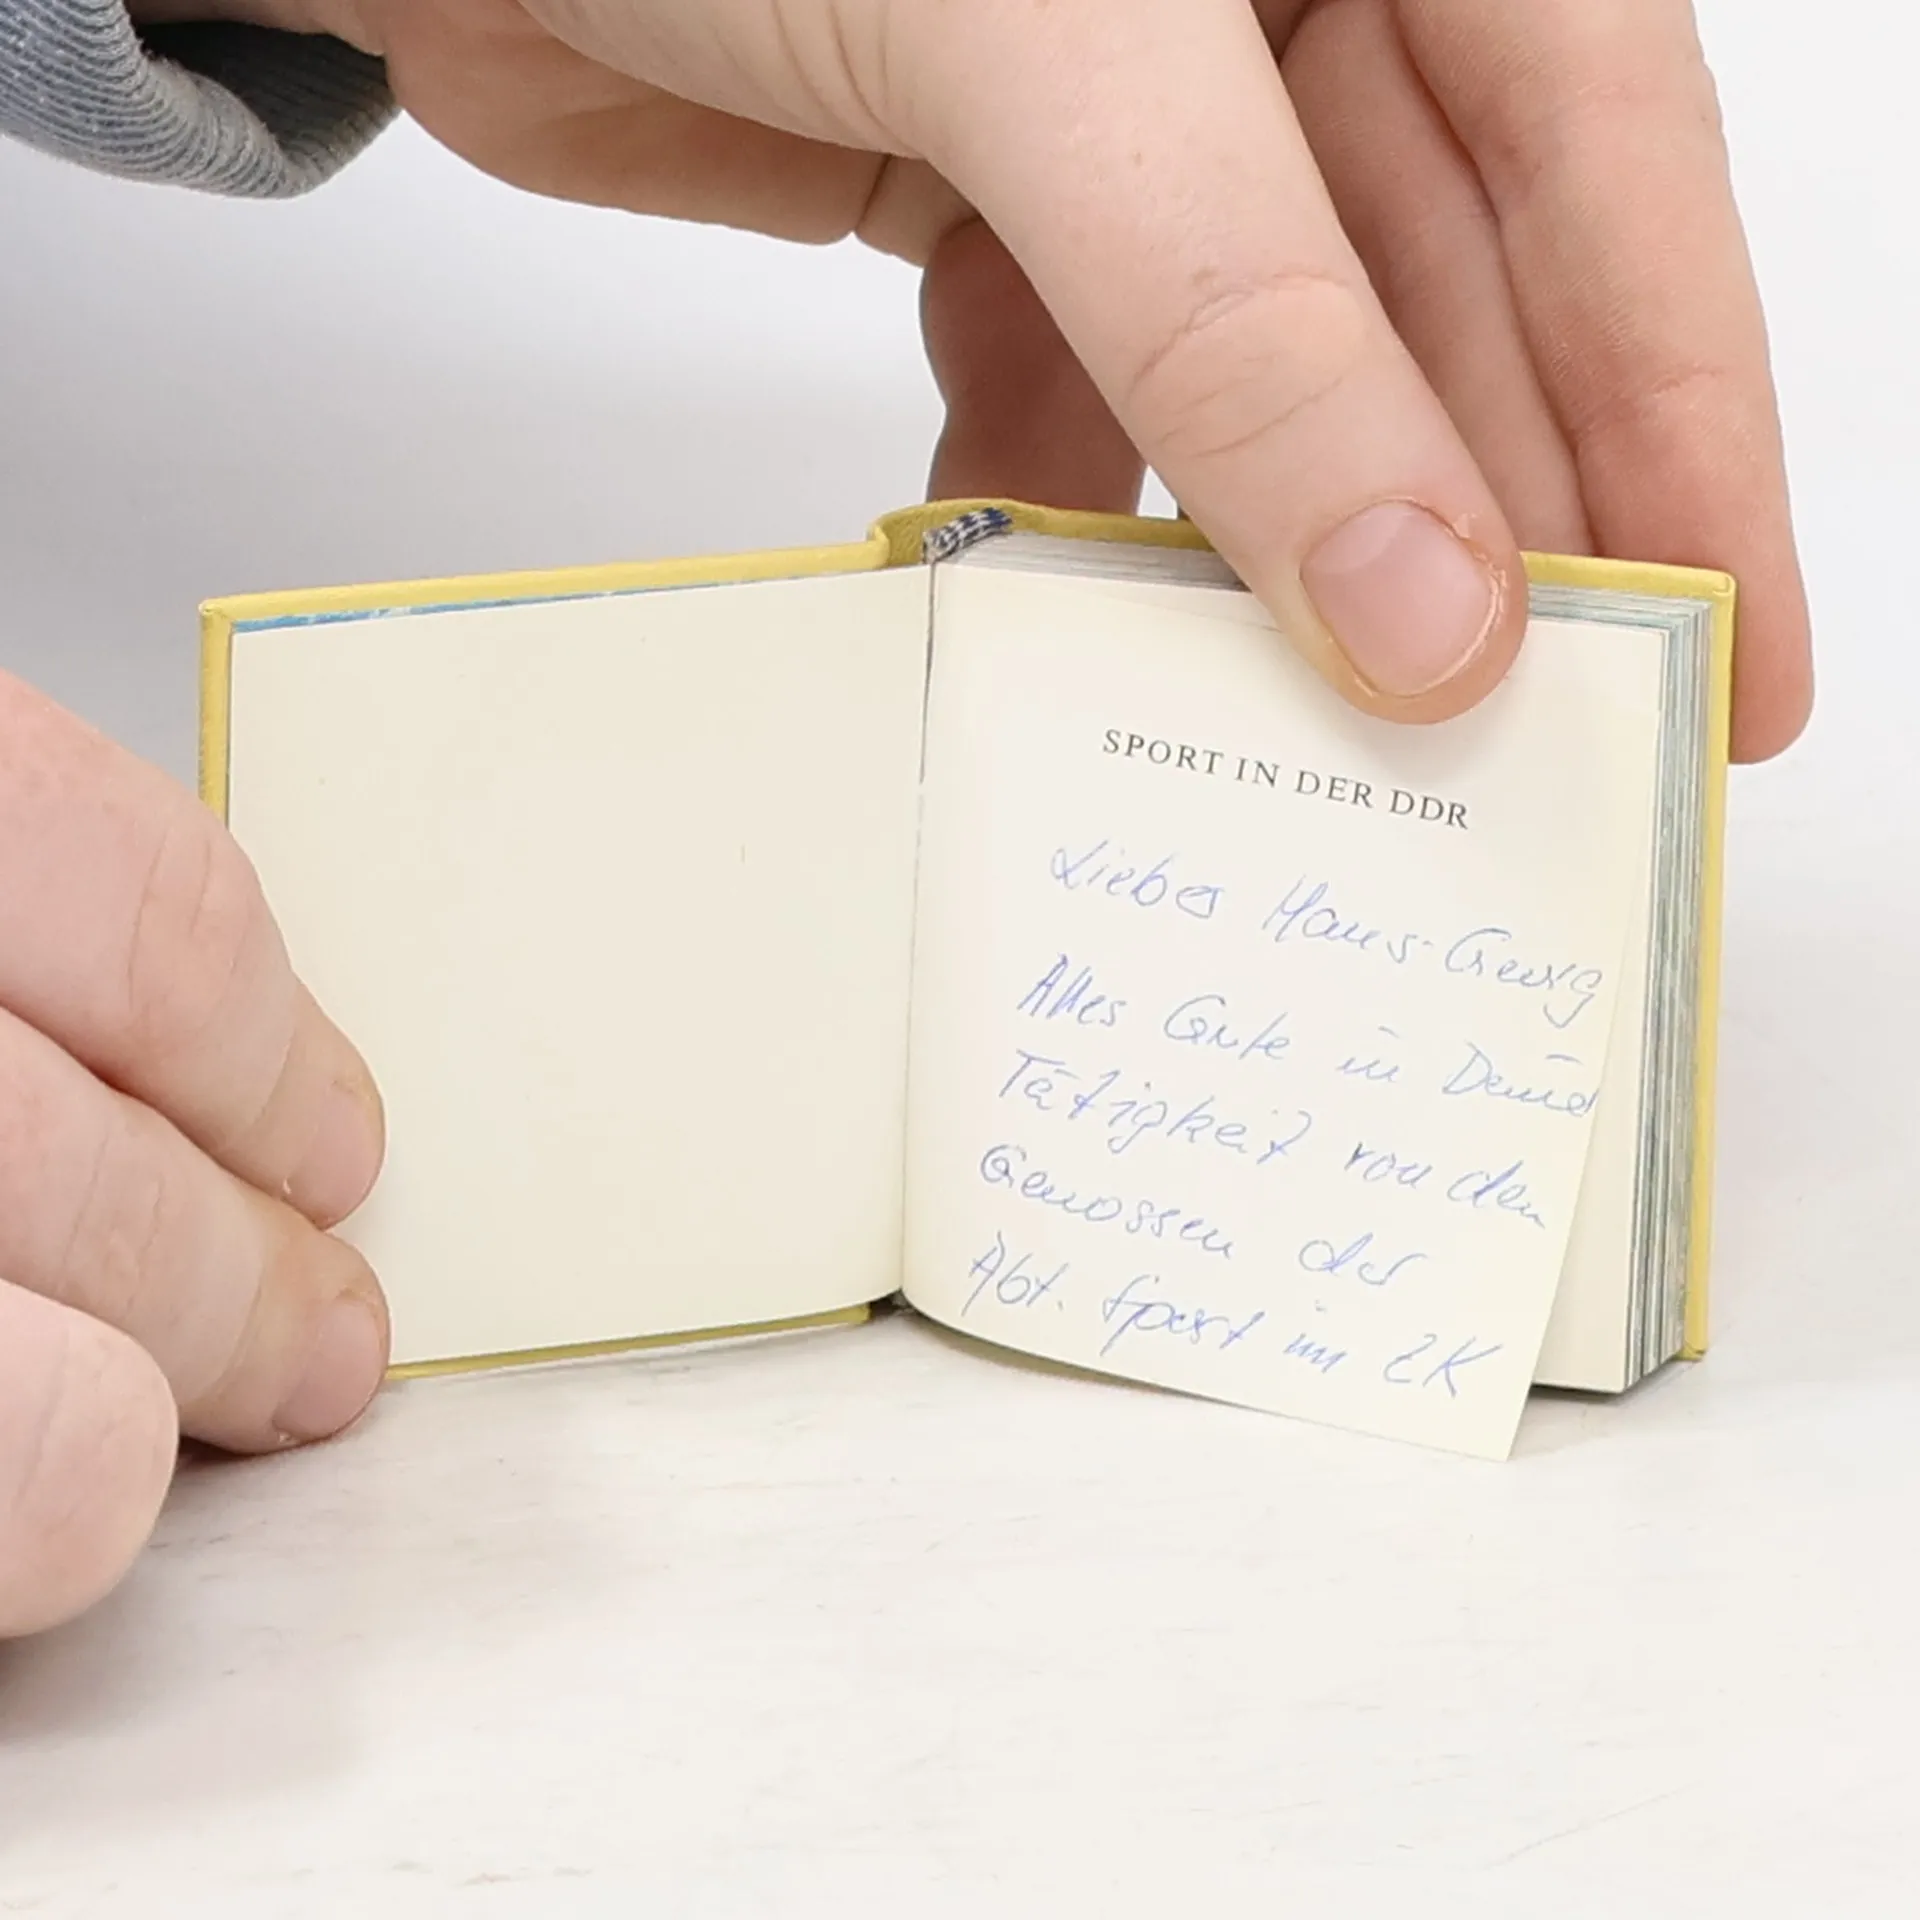 SPORT IN DER DDR
Lieber Hans-Georg
Alles Gute in Deiner
Tätigkeit von den
Genossen der
Abt. Sport im ZK